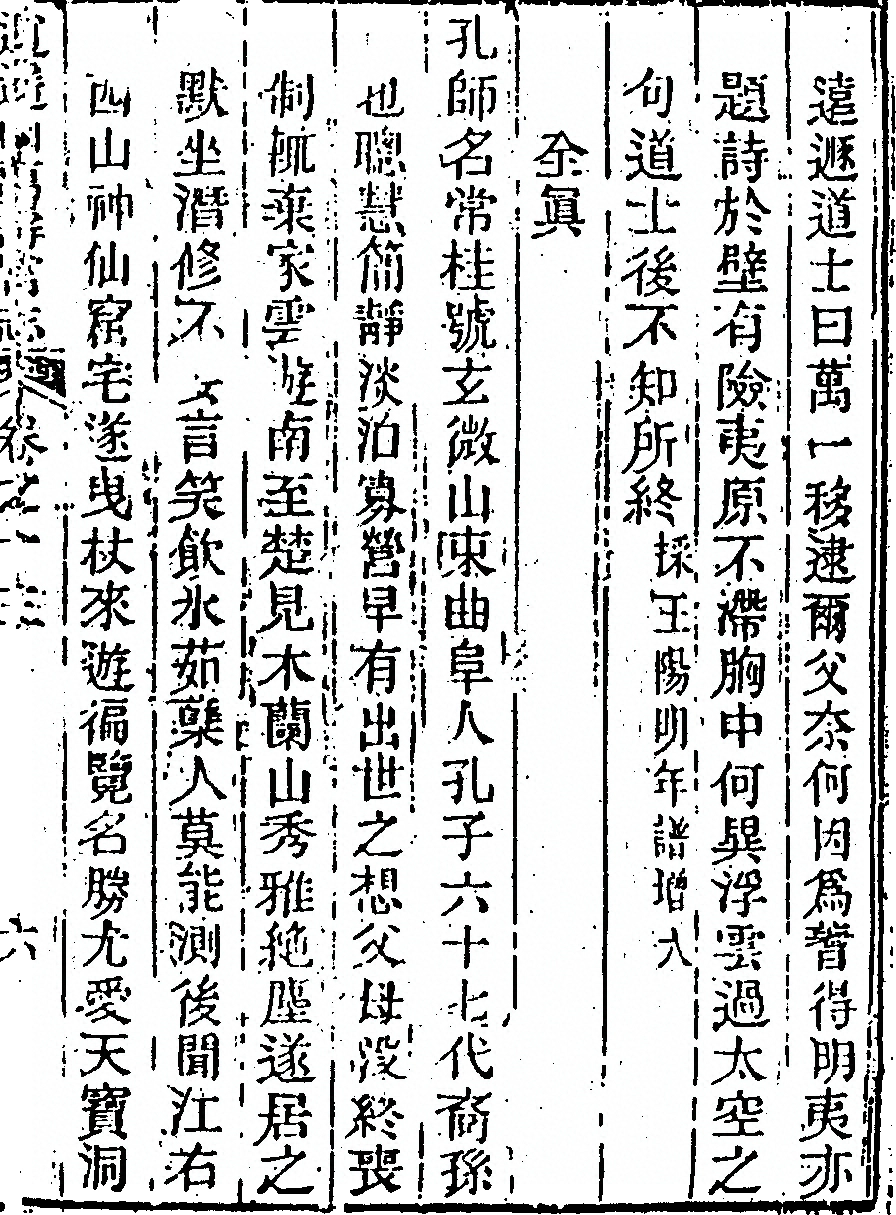 遠遯道士曰萬一移逮爾父奈何因爲蓍得明夷亦
題詩於壁有險夷原不滯胸中何異浮雲過太空之
句道士後不知所終採王陽明年譜增入
全眞
孔師名常桂號玄微山東曲阜人孔子六十七代裔孫
也聰慧簡靜淡泊寡營早有出世之想父母沒終喪
制輒棄家雲遊南至楚見木蘭山秀雅絶塵遂居之
默坐潛修不言笑飲水茹蘖人莫能測後聞江右
西山神仙窟宅遂曳杖來遊徧覽名勝尤愛天寶洞
卷之十三
六